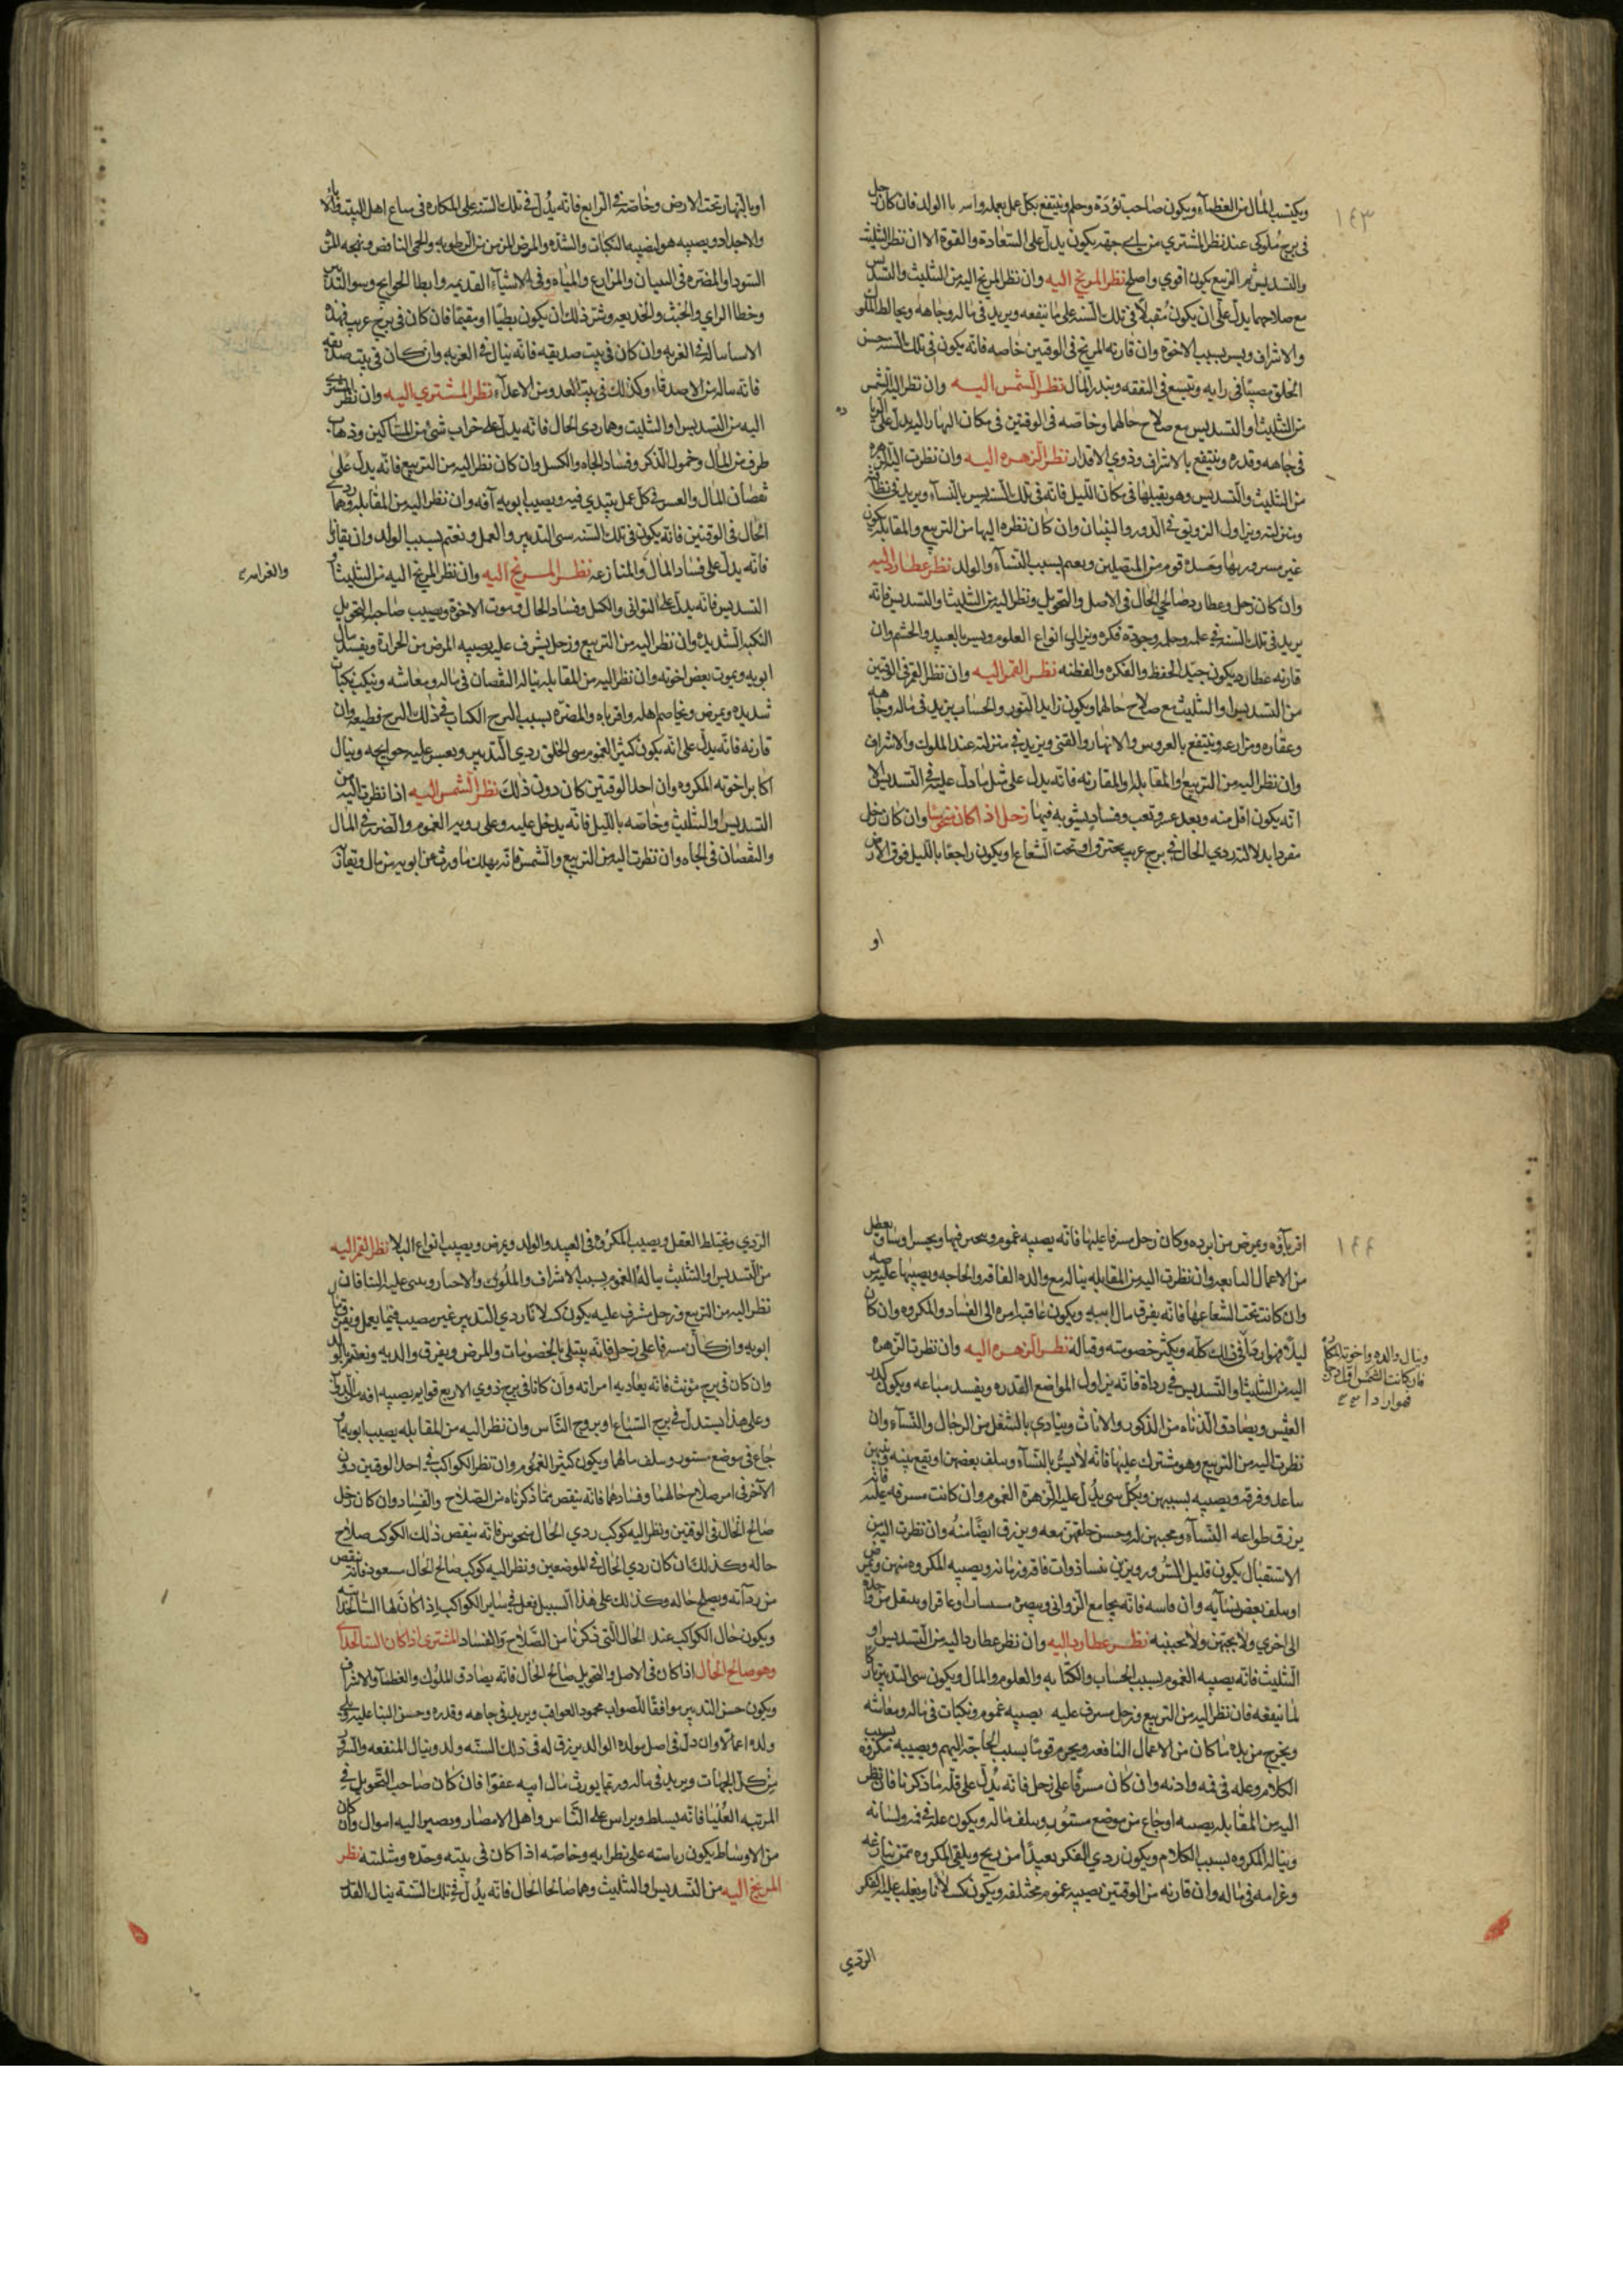 ١٤٣
ويكتسب المال من العظمآء ويكون صاحب تؤدة وحلم وينتفع بكل عمل يعمله واسر باالولد فان كان زحل
فى برج ملوكى عند نظر المشتري من اى جهه يكون يدل على السّعادة والقوة الا ان نظر التثليث
والتسديس ثم التربيع يكون اقوي واصلح نظر المريخ اليه وان نظر المريخ اليه من التثليث والتسديس
مع صلاحهما يدل على ان يكون مقبلاً فى تلك السنه على ما ينفعه ويزيد فى ماله وجاهه ويخالط الملوك
والاشراف ويسر بسبب الاخوة وان قارنه المريخ فى الوقتين خاصه فانه يكون فى تلك السنه حسن
الخلق مصيبًا فى رايه ويتسع فى النفقه ويبذر المال نظر الشمس اليه وان نظر اليه الشمس
من التثليث او التسديس مع صلاح حالهما وخاصّه فى الوقتين فى مكان النهار اليه يدل على
فى جاهه وقدره وينتفع بالاشراف وذوي الاقدار نظر الزهره اليه وان نظرت اليه الزهره
من التثليث والتسديس وهو يقبلها فى مكان الليل فانه فى تلك السنه يسر بالنسآء ويزيد فى
ومنزلته ويزاول التزويق فى الدور والبنيان وان كان نظره اليها من التربيع والمقابله يكون
غير مسرور بها قوم من المتصلين ويغتم بسبب النسآء والولد نظر عطارد اليه
وان كان زحل وعطارد صالحي الحال فى الاصل والتحويل ونظر اليه من التثليث او التسديس فانه
يزيد فى تلك السنه فى علمه وحلمه وجودة فكره ويزاول انواع العلوم ويسر بالعبيد والحشم وان
قارنه عطارد يكون جيّد الحفظ والفكره والفطنه نظر القمر اليه وان نظر القمر فى الوقتين
من التسديس او التثليث مع صلاح حالهما ويكون زايد النور والحساب يزيد فى ماله وجاهه
وعقاره ومزارعه وينتفع بالغروس والانهار والقنى ويزيد فى منزلته عند الملوك والاشراف
وان نظر اليه من التربيع او المقابله او المقارنه فانه يدل على مثل ما دل عليه فى التسديس الا
انه يكون اقل منه وبعد عسر وتعب وفساد يشوبه فيها زحل اذا كان منحوسًا وان كان زحل
منفردا بدلالته ردي الحال فى برج غريب محترق او تحت الشعاع او يكون راجعًا بالليل فوق الارض
او
او بالنهار تحت الارض وخاصّه فى الرابع فانه يدل فى تلك السنه على المكاره فى ساير اهل البيت والابآء
والاجداد ويصيبه هو ايضًا النكبات والشدّه والمرض المزمن من الرطوبه والحمى النافض وتهيج المره
السّودا والمضره فى البنيان والمزارع والمياه وفى الاشيآء القديمه وابطا الحوايج وسو التدبير
وخطا الراي والخبث والخديعه وشر ذلك ان يكون بطيًا او مقيمًا فان كان فى برج غريب فهذه
الاسيا ساله فى الغربه وان كان فى بيت صديقه فانه ينال فى الغربه وان كان فى بيت صديقه
فانه ساله من الاصدقاء وكذلك فى بيت العدو من الاعدآء نظر المشتري اليه وان نظر المشتري
اليه من التسديس او التثليث وهما ردي الحال فانه يدل على خراب شئ من المساكين وذهاب
طرف من المال وخمول الذكر وفساد الجاه والكسل وان كان نظر اليه من التربيع فانه يدل على
نقصان المال والعسر فى كل عمل يبتدي فيه ويصيب ابويه آفه وان نظر اليه من المقابله وهما ردي
الحال فى الوقتين فانه يكون فى تلك السنه سى التدبير والعمل ويغتم بسبب الولد وان يقارنه
فانه يدل على فساد المال والمنازعه نظر المريخ اليه وان نظر المريخ اليه من التثليث او
والغرامه صح
التسديس فانه يدل على التوانى والكسل وفساد الحال وموت الاخوة ويصيب صاحب التحويل
النكبه الشديده وان نظر اليه من التربيع وزحل يشرف عليه يصيبه المرض من الحرارة ويفسد مال
ابويه ويموت بعض اخوته وان نظر اليه من المقابله يناله النقصان فى ماله ومعاشه وينكب نكبات
شديده ويمرض ويخاصم اهله واقرباه والمضرّه بسبب البرج الكاين فى ذلك البرج قطيعه وان
قارنه فانه يدل على انه يكون كثير الغموم سى الخلق ردي التدبير ويعسر عليه حوايجه وينال
اكابر اخوته المكروه وان احد الوقتين كان دون ذلك نظر الشمس اليه اذا نظرت اليه من
التسديس او التثليث وخاصّه بالليل فانه يدخل عليه وعلى الغموم والضرر فى المال
والنقصان فى الجاه وان نظرت اليه من التربيع والشمس فانه يهلك ما ورث عن ابويه من مال
١٤٤
اقربآؤه ويمرض من ابرده وكان زحل مشرفا عليها فانه يصيبه غموم
من الاعمال النافعه وان نظرت اليه من المقابله يناله مع والده الفاقه والحاجه ويصيبها
وان كانت تحت الشعاعها فانه يفرق مال ابيه ويكون عاقبه امره الى الفساد والمكروه وان كان
ليلًا فهو ارضا فى ذلك كله ويكثر خصومته نظر الزهره اليه وان نظرت الزهره
وينال والده واخوته المكاره
فان كانت الشمس اقل
فهو ارد ا صح
اليه من التثليث او التسديس فى رداة فانه يزاول المواضع القذره ويفسد مباعه ويكون كدر
العيش ويصادق الدناه من الذكور والاناث وينادى بالشغل من الرجال والنسآء وان
نظرت اليه من التربيع وهو مشترك عليها فانه لا يسر بالنسآء ويتلف بعضهن او يقع بينه وبينهن
تباعد وفرقه ويصيبه بسببهن وبكل شى يدل عليه الزهرة الغموم وان كانت مشرفه عليه فانه
يرزق طواعه النسآء ومحبتهن له وحسن خلقهن معه ويرزق ايضًا منه وان نظرت اليه من
الاستقبال يكون قليل السّرور ويزين نسا ذوات فاقه وزمانه ويصيبه المكروه منهن
او يتلف بعض نسايه وان ماسه فانه يجامع الزوانى ويعشق عاقرا وينتقل من
الى اخري ولا يحبهن ولا يحببنه نظر عطارد اليه وان نظر عطارد اليه من التسديس او
التثليث فانه يصيبه الغموم بسبب الحساب والكتابه والعلوم والمال ويكون سى التدبير تاركا
لما ينفعه فان نظر اليه من التربيع وزحل مشرف عليه يصيبه غموم ونكبات فى ماله ومعاشه
ويخرج من يده ما كان من الاعمال النافعه ويحرم قومًا بسبب الحاجة اليهم ويصيبه مكروه بسبب
الكلام وعله فى فمه واذنه وان كان مشرفًا على زحل فانه يدل على قله ما ذكرنا فان نظر
اليه من المقابله يصيبه اوجاع من موضع مستور ويتلف ماله ويكون عله فى فمه ولسانه
ويناله المكروه بسبب الكلام ويكون ردي الفكر بعيدًا من ريح ويلقى المكروه ممن ينازعه
وغرامه فى ماله وان قارنه من الوقتين يصيبه غموم مختلفه ويكون كسلانا ويغلب عليه الفكر
الردي
الردي ويختلط العقل ويصيب المكروه فى العبيد والولد ويمرض ويصيب انواع البلا نظر القمر اليه
من التسديس او التثليث يناله الغموم بسبب الاشراف والملوك والاخبار ويسى عليه الثنا فان
نظر اليه من التربيع وزحل مشرف عليه يكون كسلانًا ردي التدبير غير مصيب فيما يعمل ويفرق
ابويه وان كان مشرفا على زحل فانه يبتلى بالخصومات والمرض ويفرق والديه ويغتم بالولد
وان كان فى برج مؤنث فانه يعاديه امراته وان كانا فى برج ذوي الاربع قوايم يصيبه افه من الدواب
وعلى هذا يستدل فى برج السّباع او بروج النّاس وان نظر اليه من المقابله يصيب ابويه او
جاع فى موضع مستور ويتلف مالهما ويكون كثير الغموم وان نظر الكواكب فى احد الوقتين دون
الآخر فى امر صلاح حالهما وفسادهما فانه ينقص مما ذكرناه من الصّلاح والفساد وان كان زحل
صالح الحال فى الوقتين ونظر اليه كوكب ردي الحال منحوس فانه ينقص ذلك الكوكب صلاح
حاله وكذلك ان كان ردي الحال فى الموضعين ونظر اليه كوكب صالح الحال مسعود فانه ينقص
من رداته ويصلح حاله وكذلك على هذا السبيل نعمل فى ساير الكواكب اذا كان لها السّالخداه
ويكون حال الكواكب عند الحال التى ذكرنا من الصّلاح والفساد المشترى اذا كان السالخداه
وهو صالح الحال اذا كان فى الاصل والتحويل صالح الحال فانه يصادق الملوك والعظمآ والاشراف
ويكون حسن التدبير موافقًا للصواب محمود العواقب ويزيد فى جاهه وقدره وحسن الثنا عليه ويلى
ولده اعمالًا وان دل فى اصل مولده الولد يرزق له فى تلك السنه ولد وينال المنفعه والسرور
من كل الجهات ويزيد فى ماله وربما يورث مال ابيه عفوًا فان كان صاحب التحويل فى
المرتبه العليا فانه يسلط ويراس على النّاس واهل الامصار ويصير اليه اموال وان كان
من الاوساط يكون رياسته على نظرايه وخاصّه اذا كان فى بيته وحدّه ومثلثته نظر
المريخ اليه من التسديس او التثليث وهما صالحا الحال فانه يدل فى تلك السّنة ينال